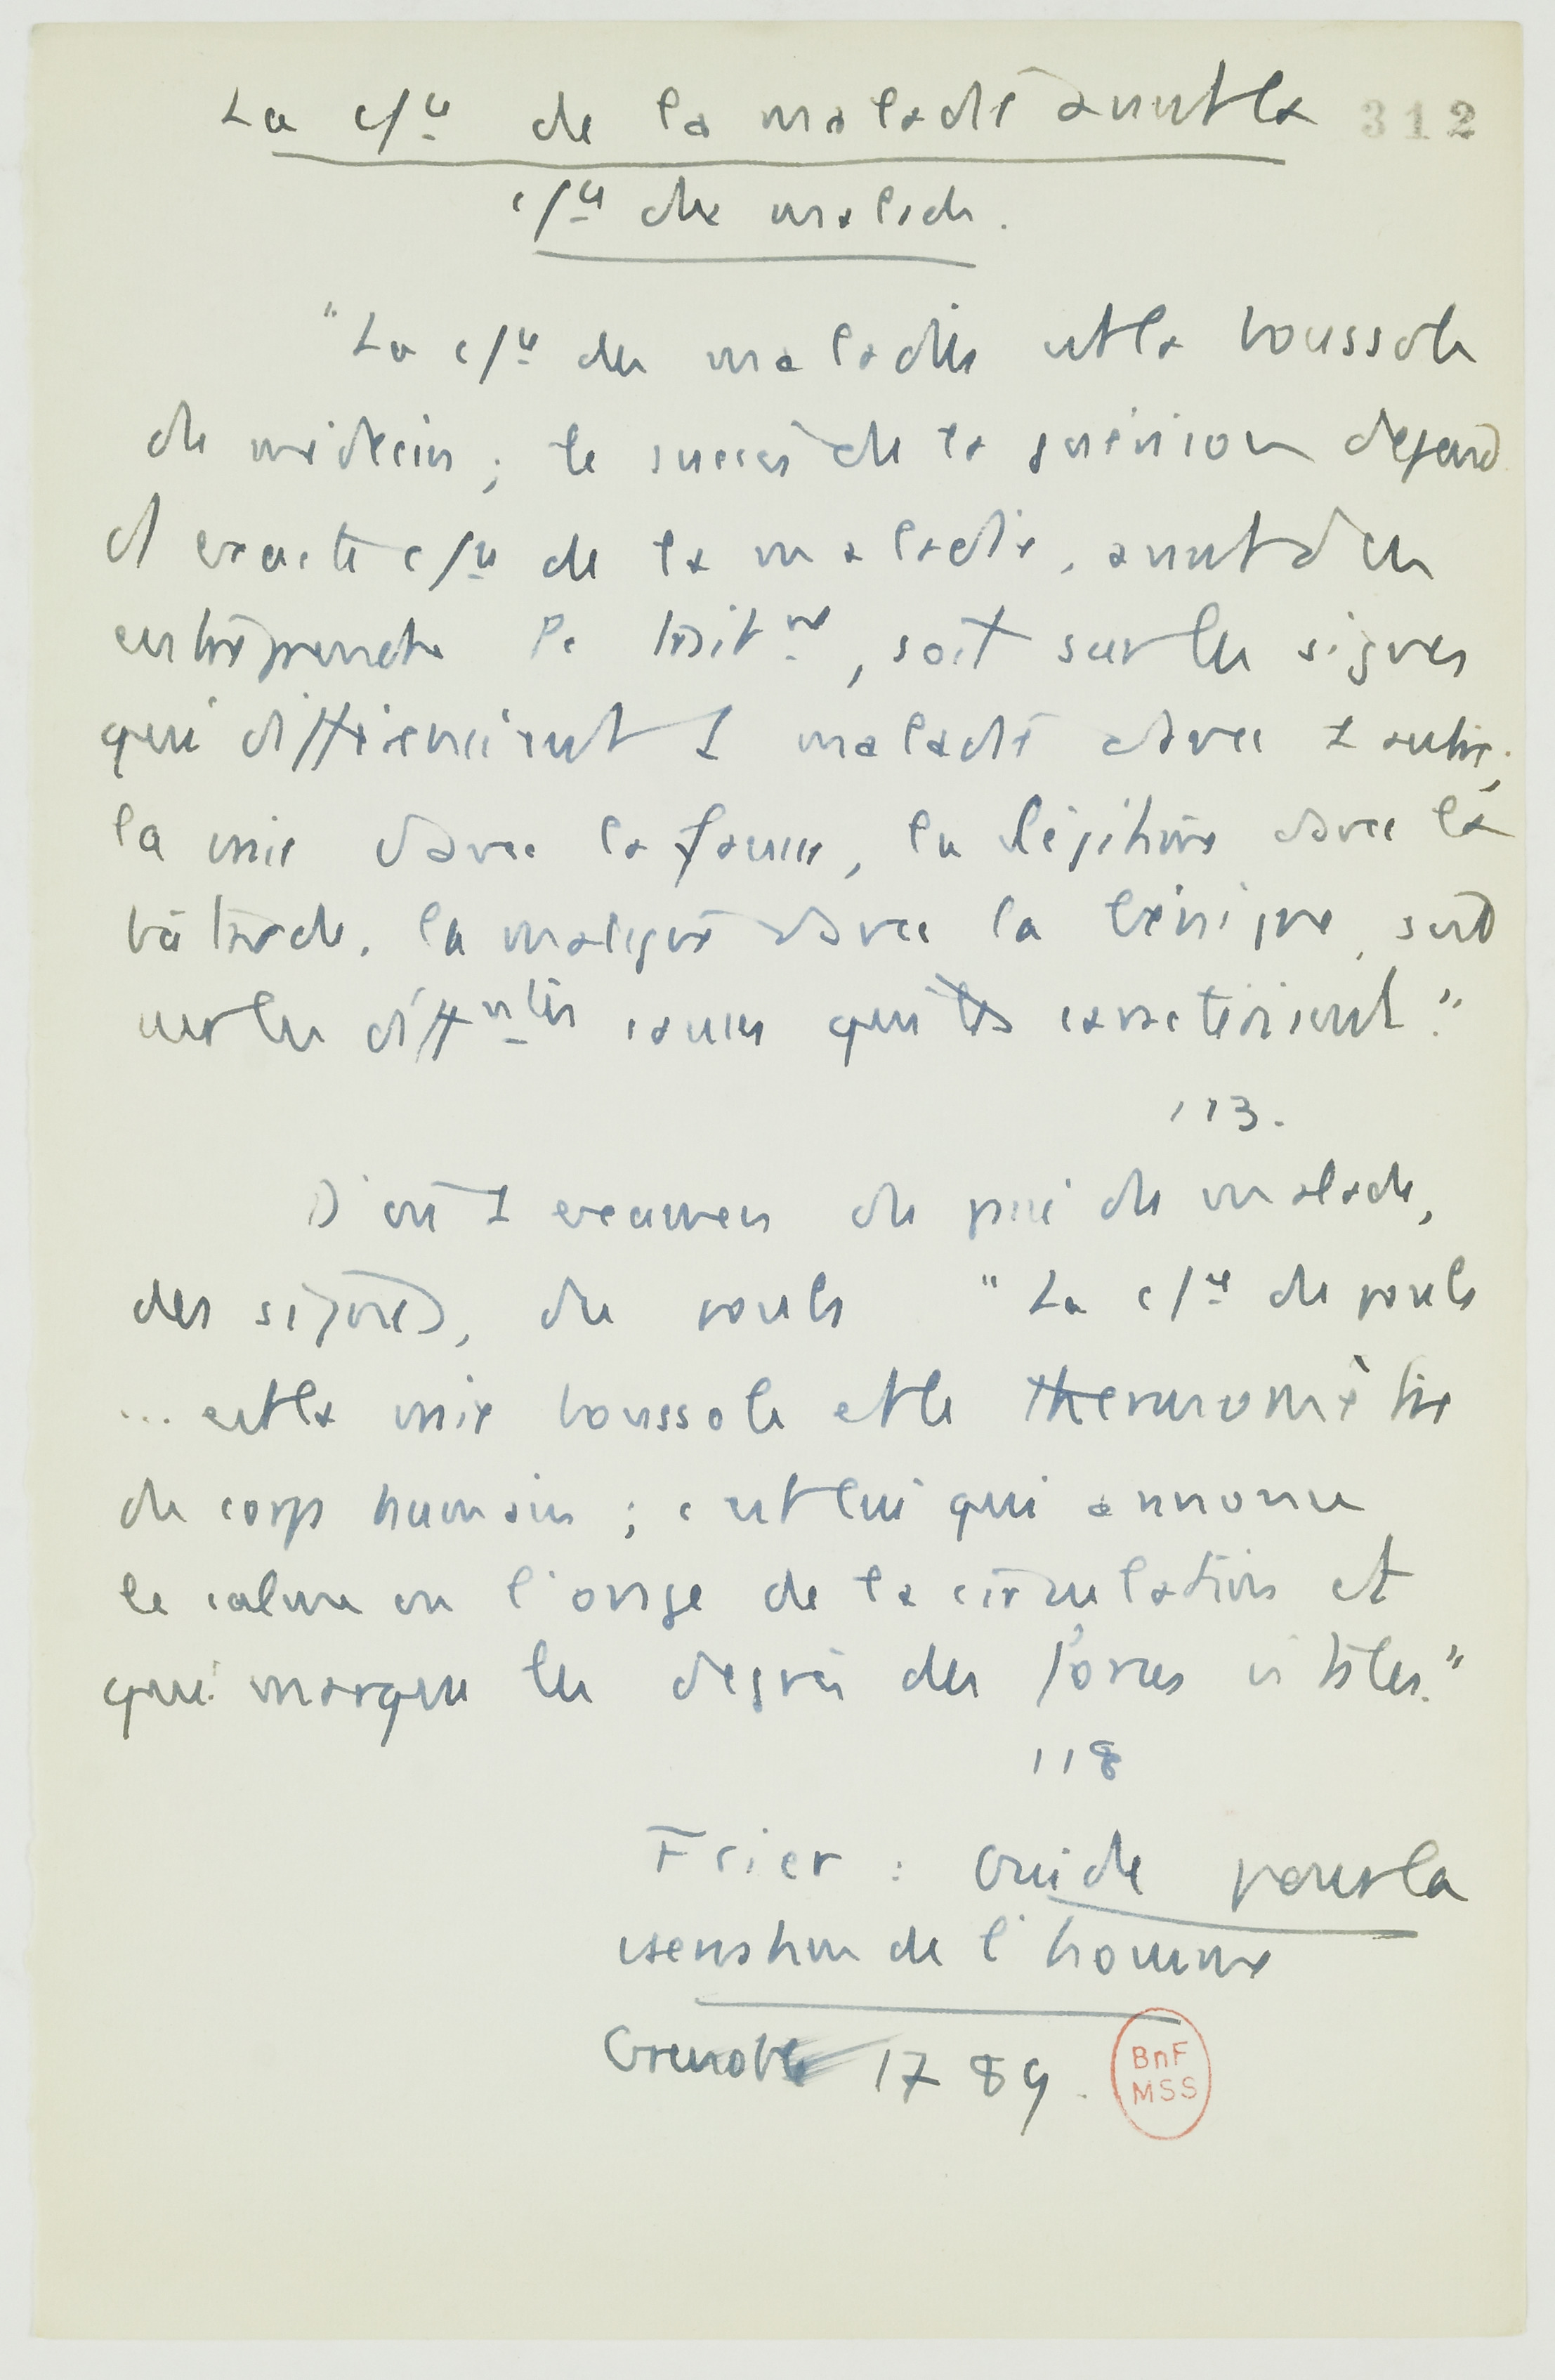 La c/ce de la maladie avant la 312
c/ce du malade.
"La c/ce des maladies est la boussole
du médecin ; le succès de la guérison dépend
d exacte c/ce de la maladie, avant d en
entreprendre le traitnt, soit sur les signes
qui différencient 1 maladie d'avec 1 autre,
la vraie d'avec la fausse, la légitime d'avec la
bâtarde, la maligne d'avec la bénigne, soit
sur les difftes causes qui les caractérisent."
113.
D'où 1 examen du pui du malade,
des signes, du pouls "La c/ce du pouls
... est la vraie boussole et le thermomètre
du corps humain ; c est lui qui annonce
le calme ou l'orage de la circulation et
qui marque les degrés des forces vitales."
118
Frier : Guide pour la
conservation de l'homme
Grenoble 1789.
BnF
MSS